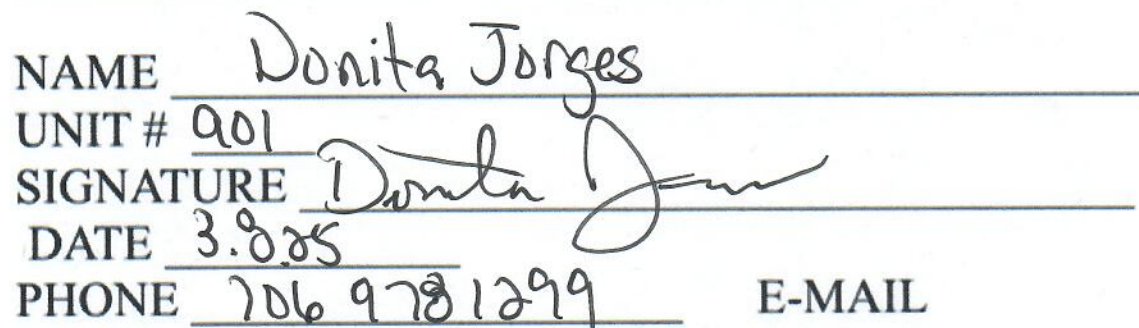 NAME Donita Jorges
UNIT # 901
SIGNATURE Donita
DATE 3.8.25
PHONE 706 978 1299 E-MAIL